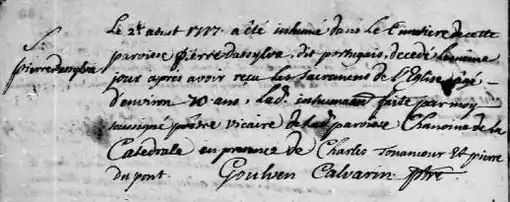 Le 2e aoust 1727. a été inhumé dans le Cimetiere de cette
S.
pierre dasylva
paroisse pierre dasylva, dit portugais, decedé le même
jour après avoir reçu les Sacrement de l'Eglise âgé
d'environ 70 ans, lad. inhumaon faite par moy
soussigné prêtre vicaire de lad. paroisse Chanoine de la
Catedrale en presence de Charles Tonancour Et pierre
du pont. Goulven Calvarin ptre